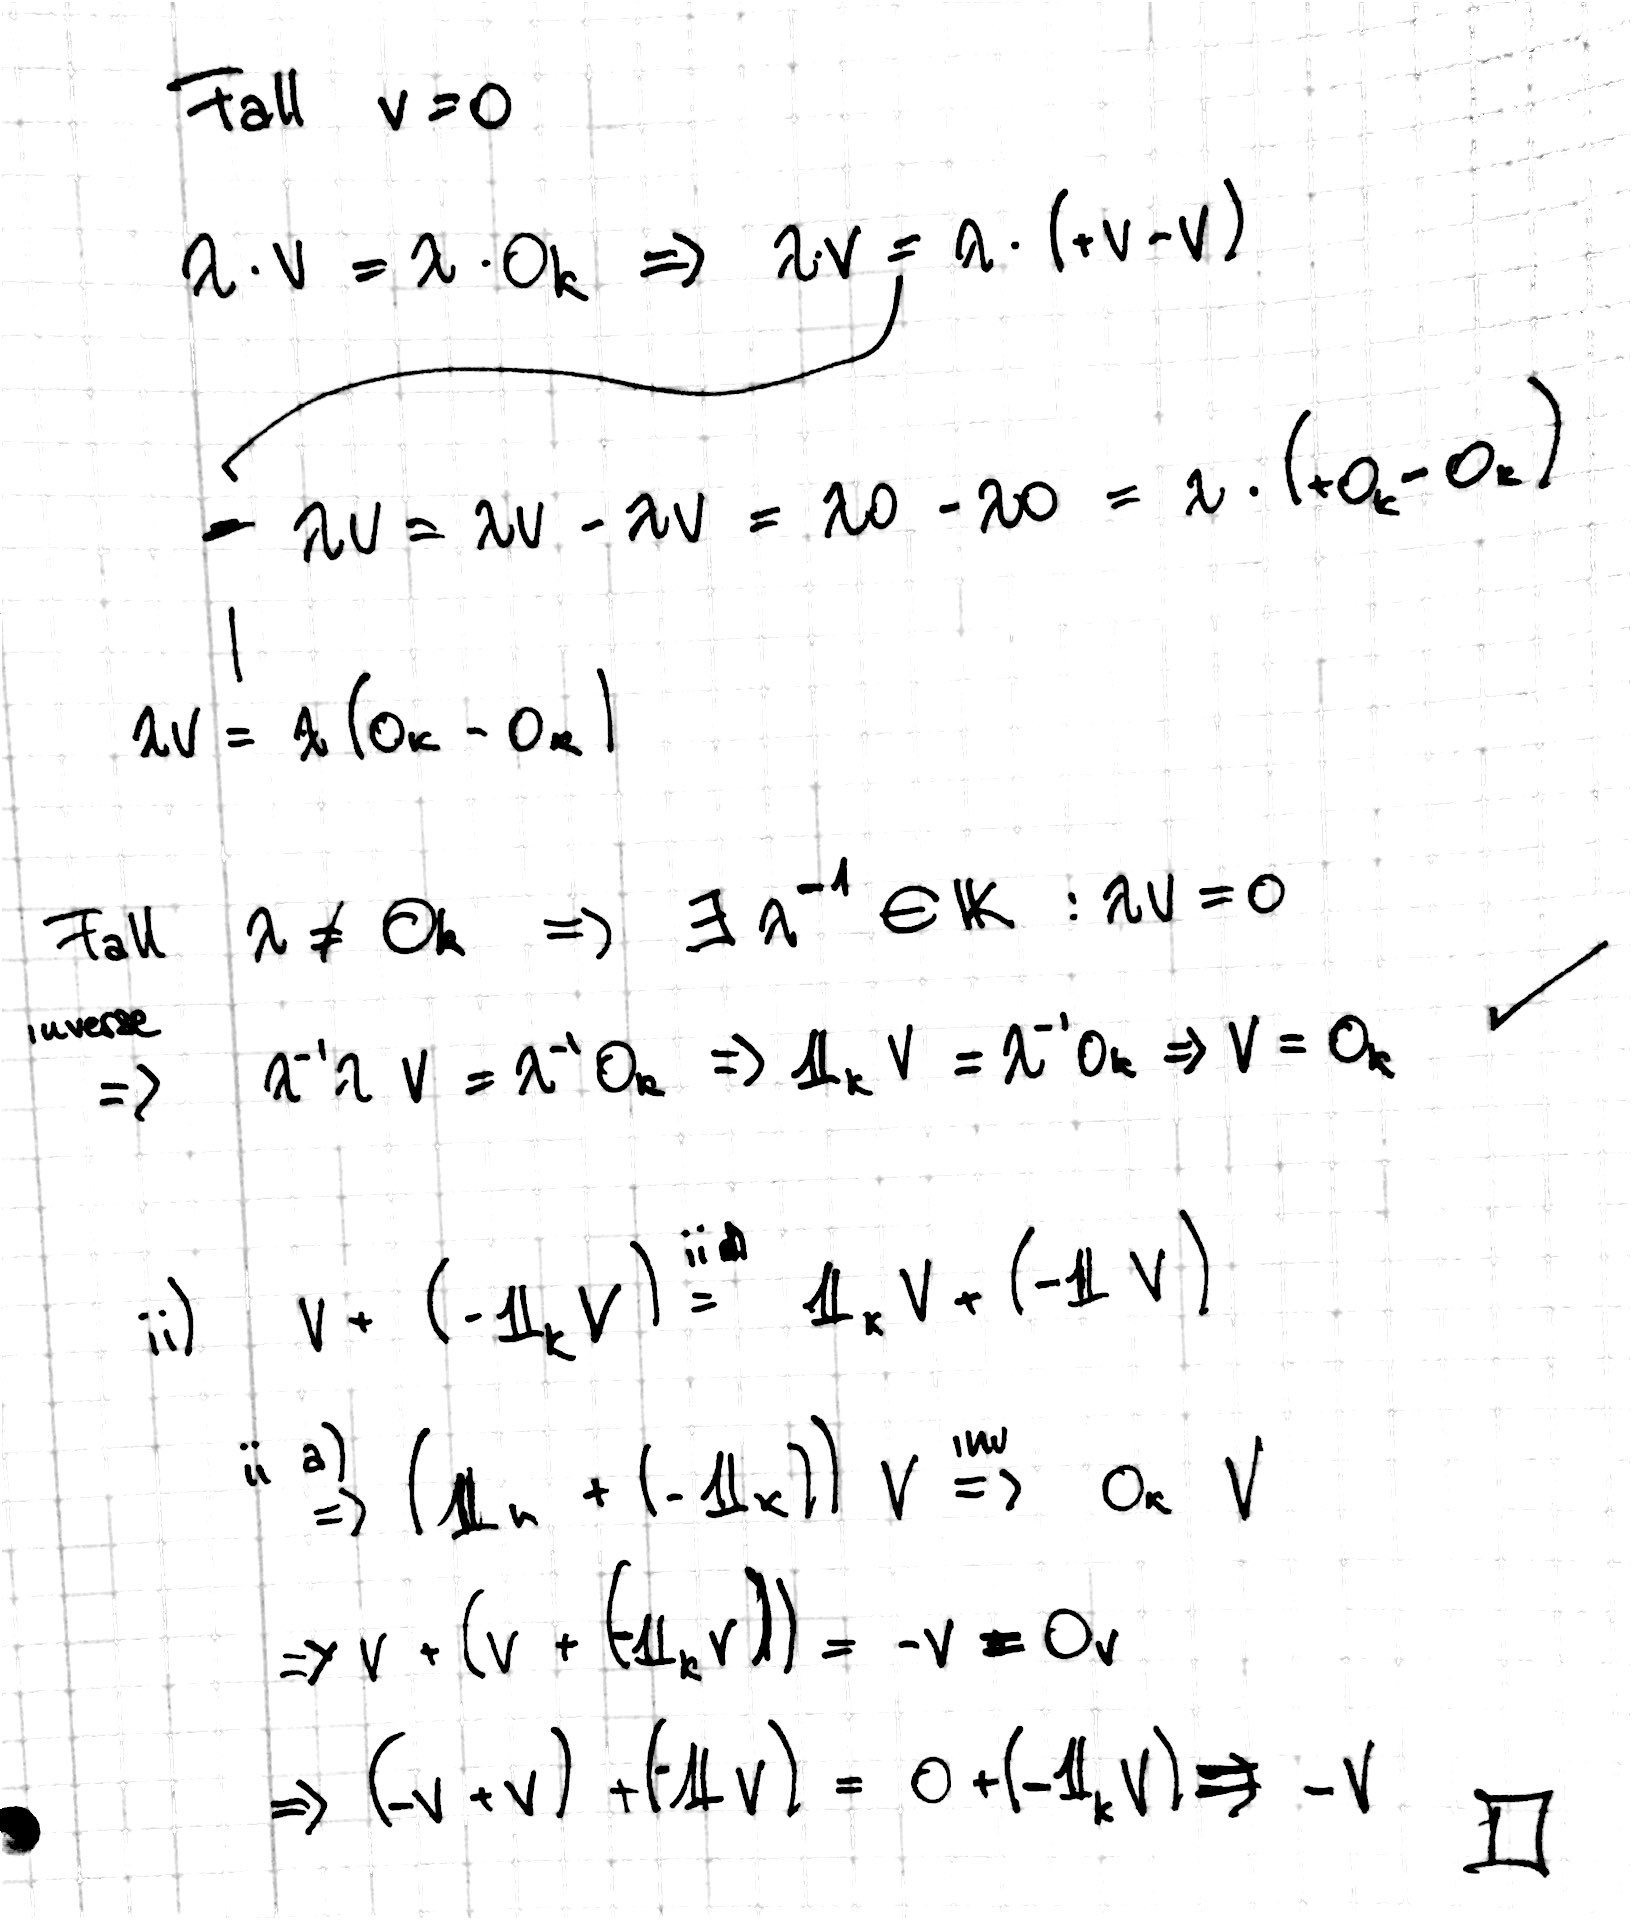 Fall v = 0
λ · v = λ · 0k => λ·v = λ · (+v - v)
- λv = λv - λv = λ0 - λ0 = λ · (+0k - 0k)
λv = λ (0k - 0k)
Fall λ ≠ 0k => ∃ λ⁻¹ ∈ 𝕂 : λv = 0
inverse
=> λ⁻¹λ v = λ⁻¹0k => 𝟙k v = λ⁻¹0k => v = 0k ✓
ii) v + (-𝟙k v) = 𝟙k v + (-𝟙 v)
ii a) => (𝟙k + (-𝟙k)) v inv => 0k v
=> v + (v + (-𝟙k v)) = -v = 0v
=> (-v + v) + (-𝟙 v) = 0 + (-𝟙k v) => -v □